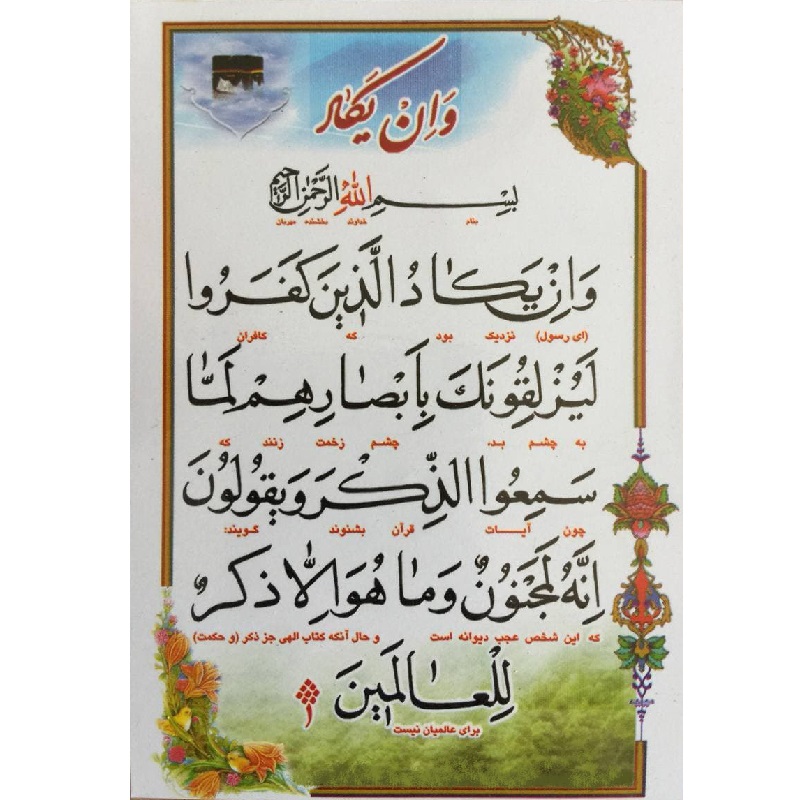 وَاِنْ یَکاد
بِسْمِ اللّٰهِ الرَّحْمٰنِ الرَّحیمِ
بنام خداوند بخشنده مهربان
وَاِنْ یَکادُ الَّذینَ کَفَرُوا
(ای رسول) نزدیک بود که کافران
لَیُزْلِقُونَکَ بِاَبْصارِهِمْ لَمَّا
به چشم بد، چشم زخمت زنند که
سَمِعُوا الذِّکْرَ وَیَقُولُونَ
چون آیات قرآن بشنوند گویند:
اِنَّهُ لَمَجْنُونٌ وَمٰا هُوَ اِلّٰا ذِکْرٌ
که این شخص عجب دیوانه است و حال آنکه کتاب الهی جز ذکر (و حکمت)
لِلْعٰالَمینَ
برای عالمیان نیست